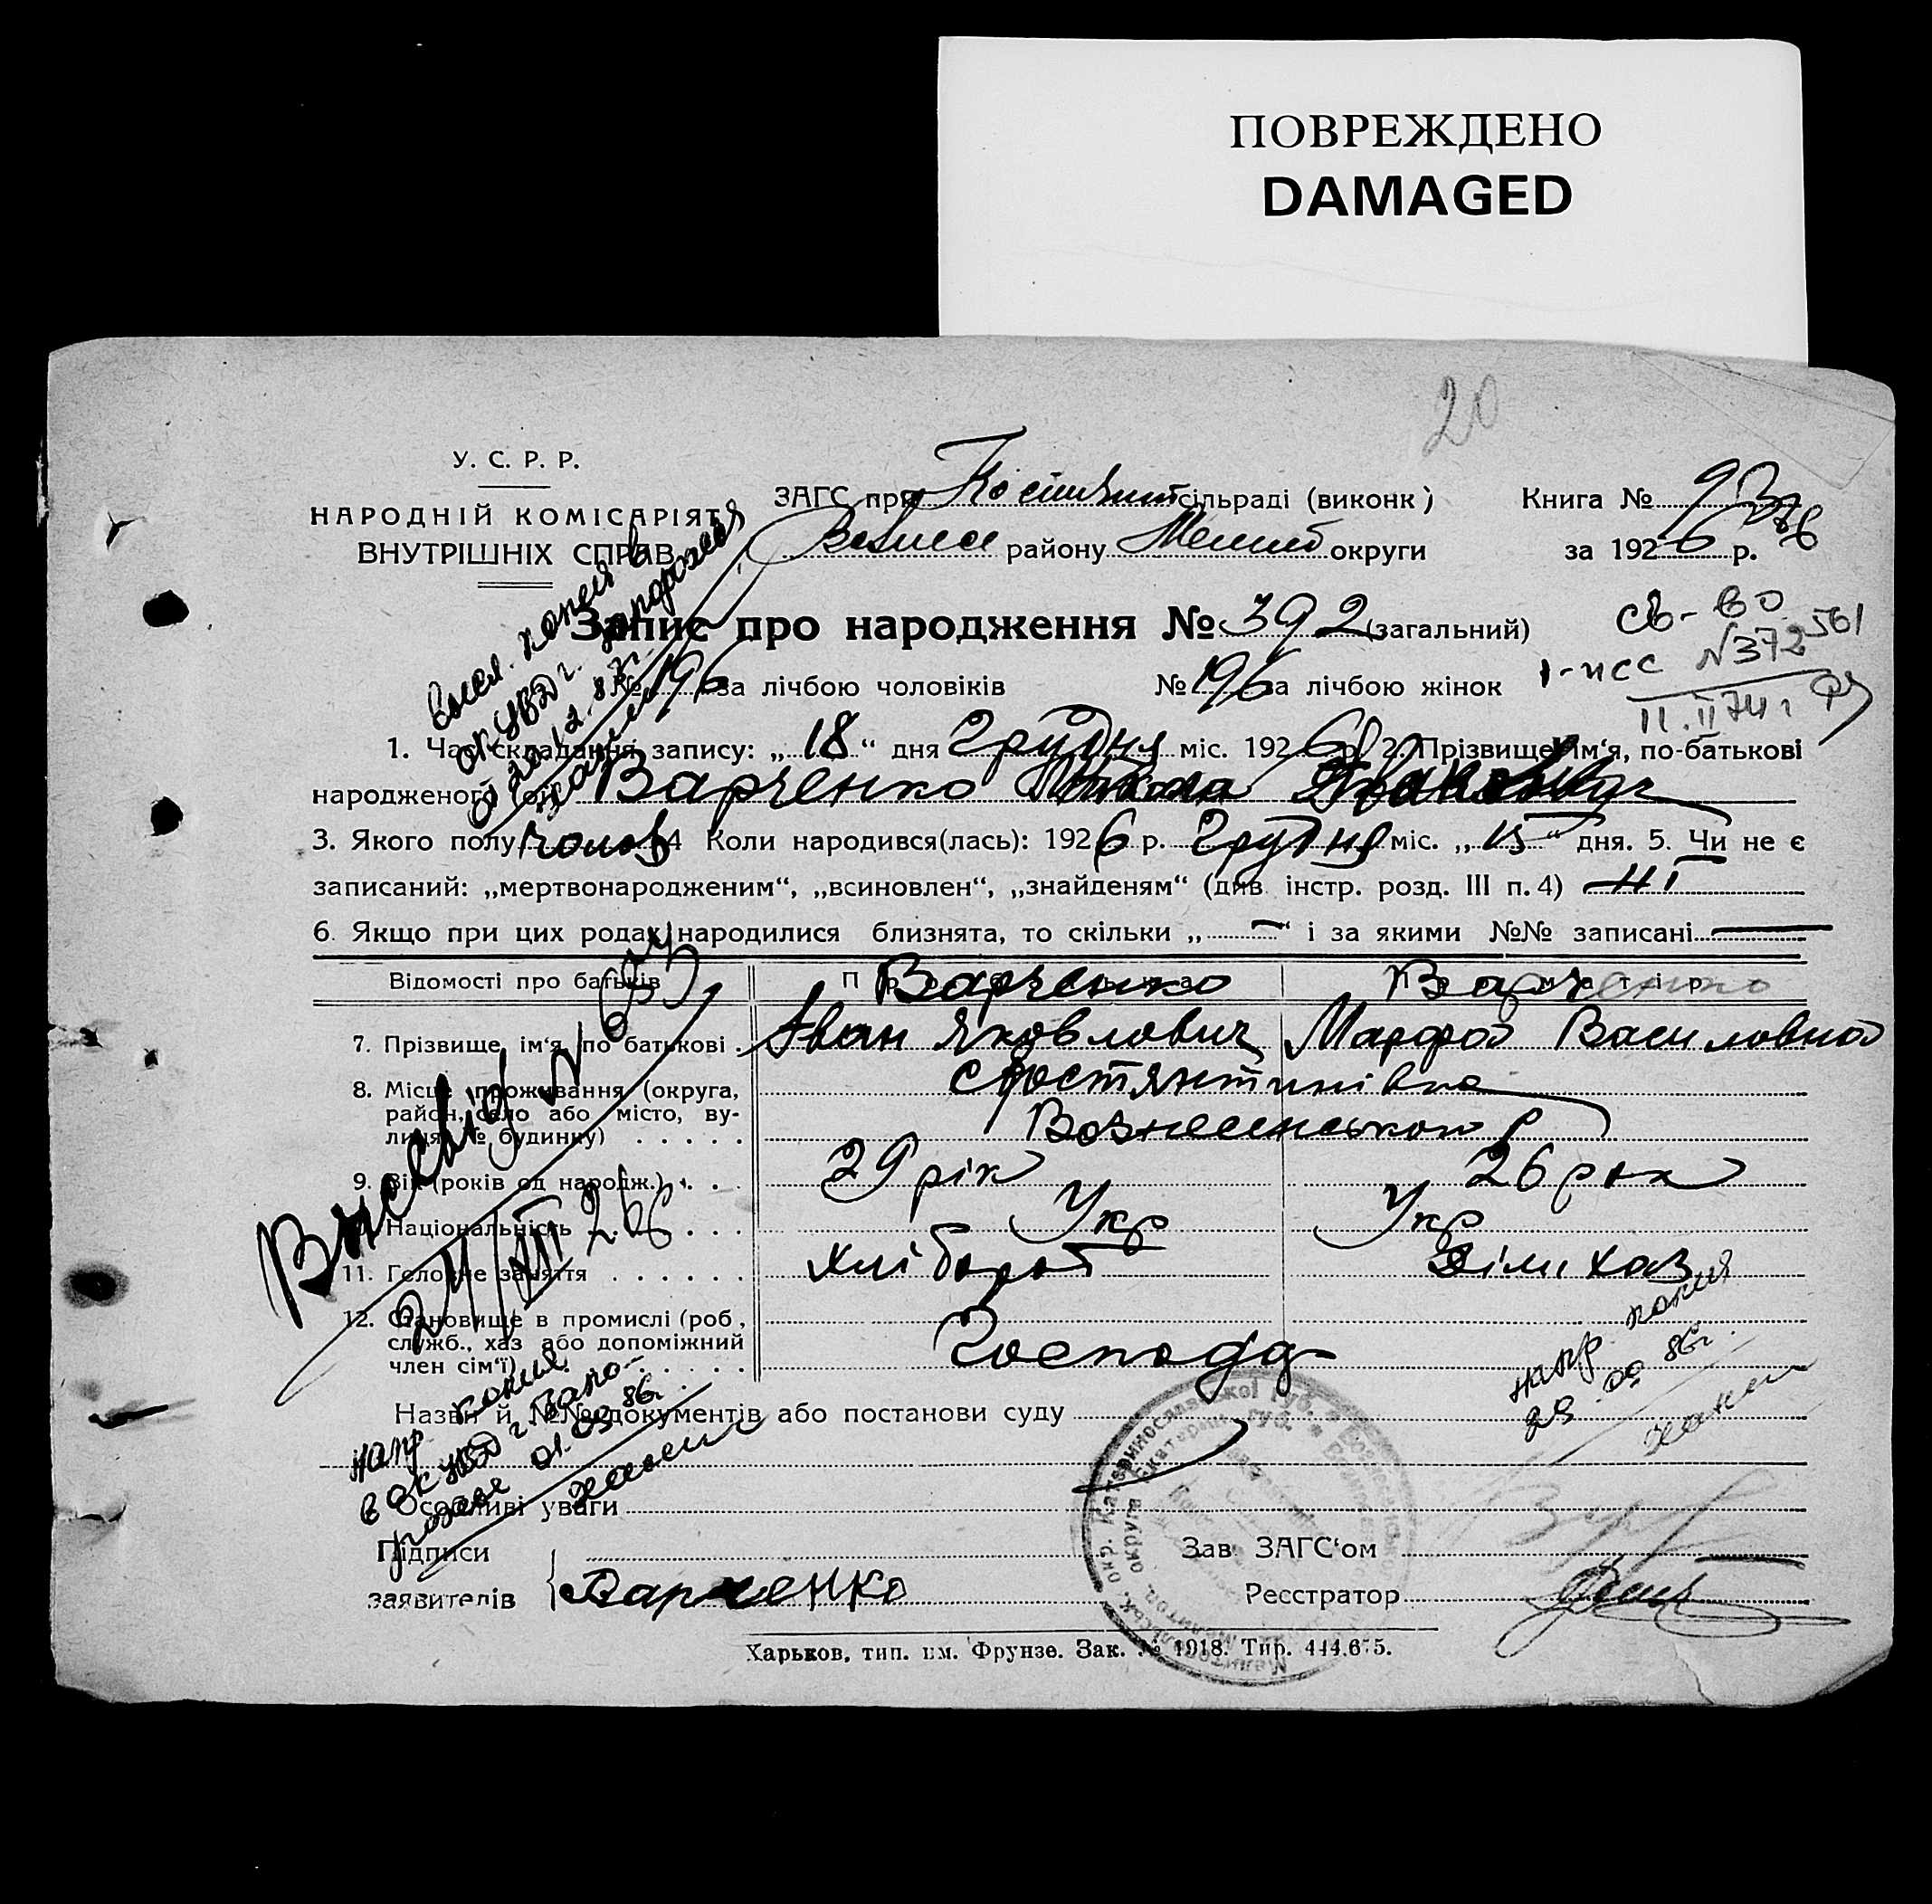 ПОВРЕЖДЕНО
DAMAGED
20
У. С. Р. Р.
НАРОДНІЙ КОМІСАРІЯТ
ВНУТРІШНІХ СПРАВ
ЗАГС при Костянт сільраді (виконк)
Книга №
району Мелит округи
за 1926 р.
Запис про народження № 392 (загальний)
св-во
I-ЖС № 372561
11.II 74 г
№ 196 за лічбою чоловіків № 196 за лічбою жінок
1. Час складання запису: „18“ дня Грудня міс. 1926 р. 2. Прізвище, ім‘я, по-батькові
народженого(ої) Варченко Микола Іванович
3. Якого полу чолов 4 Коли народився(лась): 1926 р. Грудня міс. „15“ дня. 5. Чи не є
записаний: „мертвонародженим“, „всиновлен“, „знайденям“ (див. інстр. розд. III п. 4) Ні
6. Якщо при цих родах народилися близнята, то скільки „—“ і за якими №№ записані —
Відомості про батьків
Про батька
Про матір
Варченко
Варченко
7. Прізвище, ім‘я, по батькові . Іван Яковлович Марфа Василовна
8. Місце проживання (округа, район, село або місто, вулиця, № будинку) . . . . . с Костянтинівка
Вознесенського р
9. Вік (років од народж.) . . . 29 рік 26 рок
Національність . . . . . Укр Укр
11. Головне заняття . . . . . . хлібороб Діли хаз
12. Становище в промислі (роб., служб., хаз або допоміжний член сім‘ї) . . . . . . Господар
Назви й №№ документів або постанови суду
Особливі уваги
Підписи
заявителів
Варченко
Зав ЗАГС‘ом
Реєстратор
Харьков, тип. им. Фрунзе. Зак. № 1918. Тир. 444.675.
высл. копия в
ОК УВД г. Запорожья
20.12.83г.
24/XII 26
напр копия
в ОК УВД г. Запо-
рожье 01.09 86г.
напр. копия
29 09 86г.